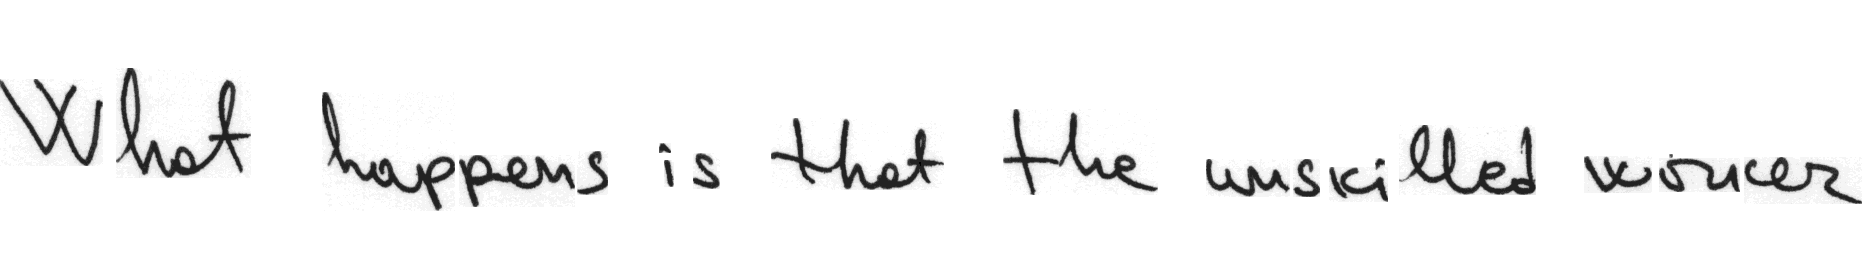 What happens is that the unskilled worker